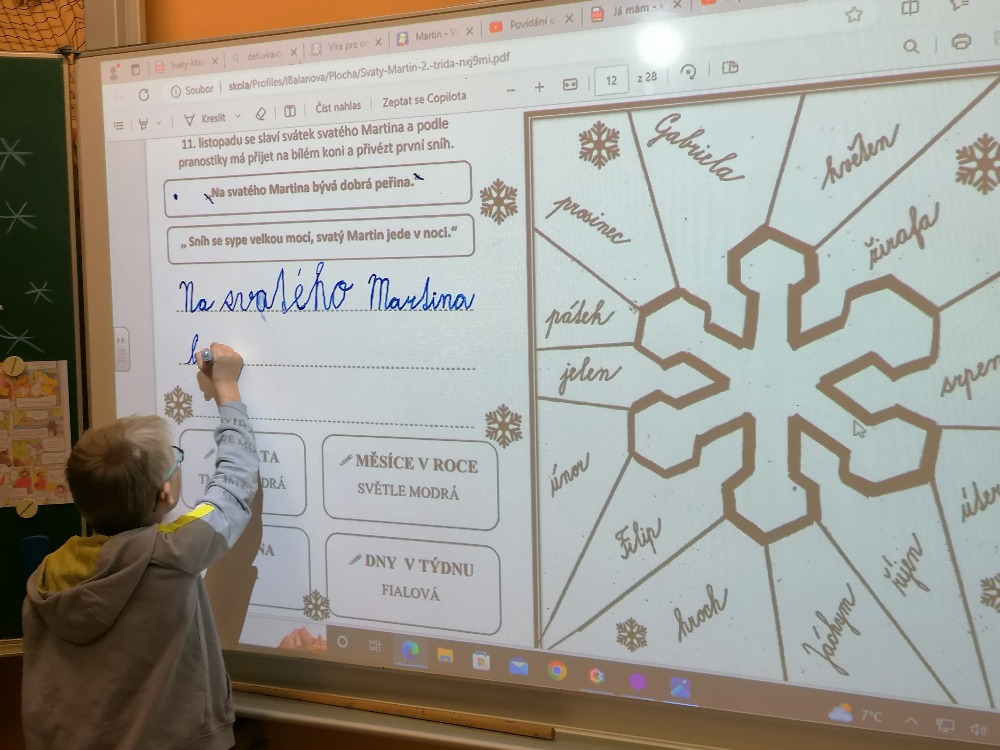 Svaty-Mar
deti.vira.cz
Víra pro d
Martin - V
Povídání o
Já mám -
Soubor
skola/Profiles/IBalanova/Plocha/Svaty-Martin-2.-trida-nxj9mi.pdf
Kreslit
Číst nahlas
Zeptat se Copilota
12
z 28
11. listopadu se slaví svátek svatého Martina a podle
pranostiky má přijet na bílém koni a přivézt první sníh.
„Na svatého Martina bývá dobrá peřina.“
„ Sníh se sype velkou mocí, svatý Martin jede v noci.“
Na svatého Martina
b
MĚSÍCE V ROCE
SVĚTLE MODRÁ
DNY V TÝDNU
FIALOVÁ
Gabriela
květen
prosinec
žirafa
pátek
jelen
srpen
únor
úter
Filip
říjen
hroch
Jáchym
7°C